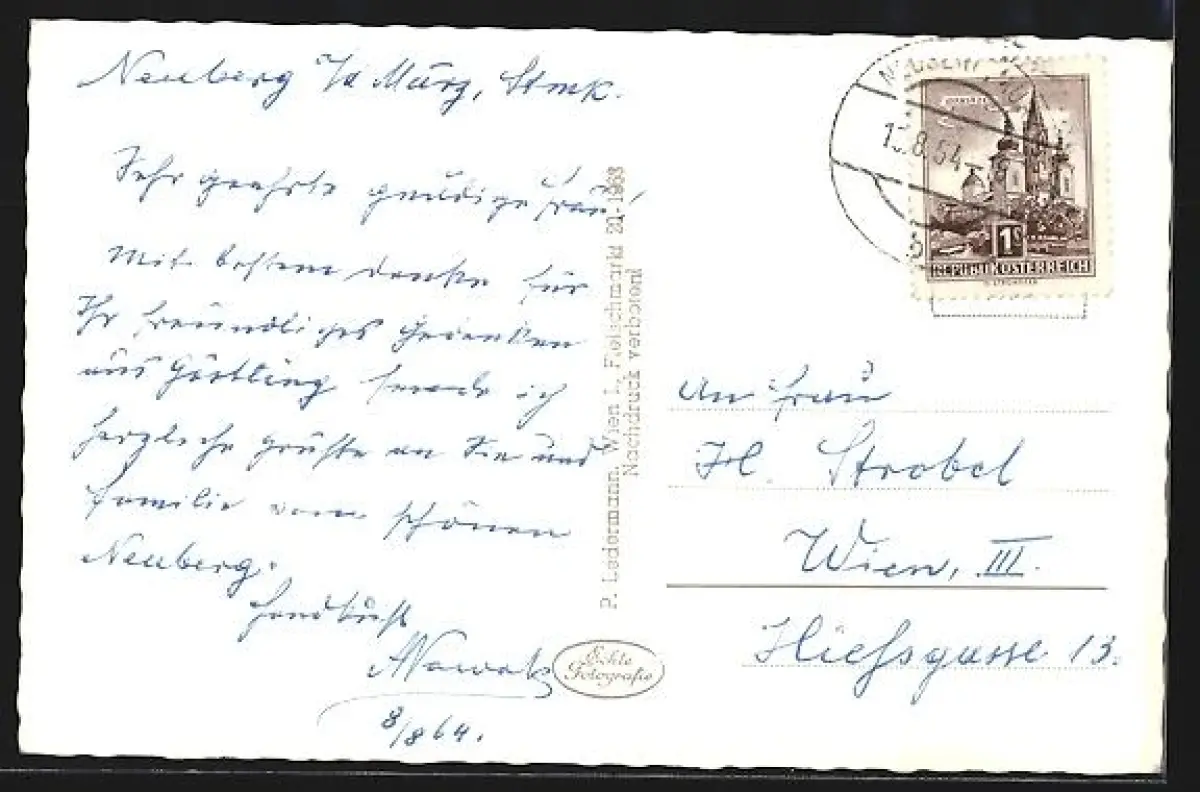 Neuberg a/d Mürz, Stmk.
Sehr geehrte gnädige Frau!
Mit bestem Danke für
Ihr freundliches Gedenken
aus Göstling sende ich
herzliche Grüße an Sie und
Familie vom schönen
Neuberg.
Handkuß
Nowak
8/8 64.
P. Ledermann, Wien I., Fleischmarkt 20 - 1963
Nachdruck verboten!
Echte
Fotografie
8.64
1S
REPUBLIK ÖSTERREICH
An Frau
H. Strobel
Wien, III.
Hießgasse 13.